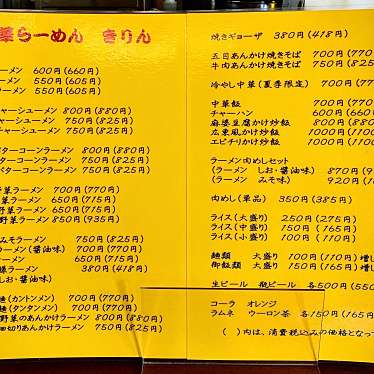 華らーめん きりん
ラーメン 600円(660円)
ラーメン 550円(605円)
ラーメン 550円(605円)
チャーシューメン 800円(880円)
チャーシューメン 750円(825円)
チャーシューメン 750円(825円)
バターコーンラーメン 800円(880円)
バターコーンラーメン 750円(825円)
バターコーンラーメン 750円(825円)
野菜ラーメン 700円(770円)
菜ラーメン 650円(715円)
菜ラーメン 650円(715円)
野菜ラーメン 850円(935円)
みそラーメン 750円(825円)
ラーメン(醤油味) 700円(770円)
ーメン 650円(715円)
ラーメン 380円(418円)
しお・醤油味)
麺(カントンメン) 700円(770円)
麺(タンタンメン) 700円(770円)
野菜のあんかけラーメン 800円(880円)
細切りあんかけラーメン 750円(825円)
焼きギョーザ 380円(418円)
五目あんかけ焼きそば 700円(770円)
牛肉あんかけ焼きそば 750円(825円)
冷やし中華(夏季限定) 700円(770円)
中華飯 700円(770円)
チャーハン 600円(660円)
麻婆豆腐かけ炒飯 800円(880円)
広東風かけ炒飯 1000円(1100円)
エビチリかけ炒飯 1000円(1100円)
ラーメン肉めしセット
(ラーメン しお・醤油味) 870円(9
(ラーメン みそ味) 920円(10
肉めし(単品) 350円(385円)
ライス(大盛り) 250円(275円)
ライス(中盛り) 150円(165円)
ライス(小盛り) 100円(110円)
麺類 大盛り 100円(110円)増し
御飯類 大盛り 150円(165円)増し
生ビール 瓶ビール 各500円(550
コーラ オレンジ
ラムネ ウーロン茶 各150円(165円
( )内は、消費税込みの価格となって